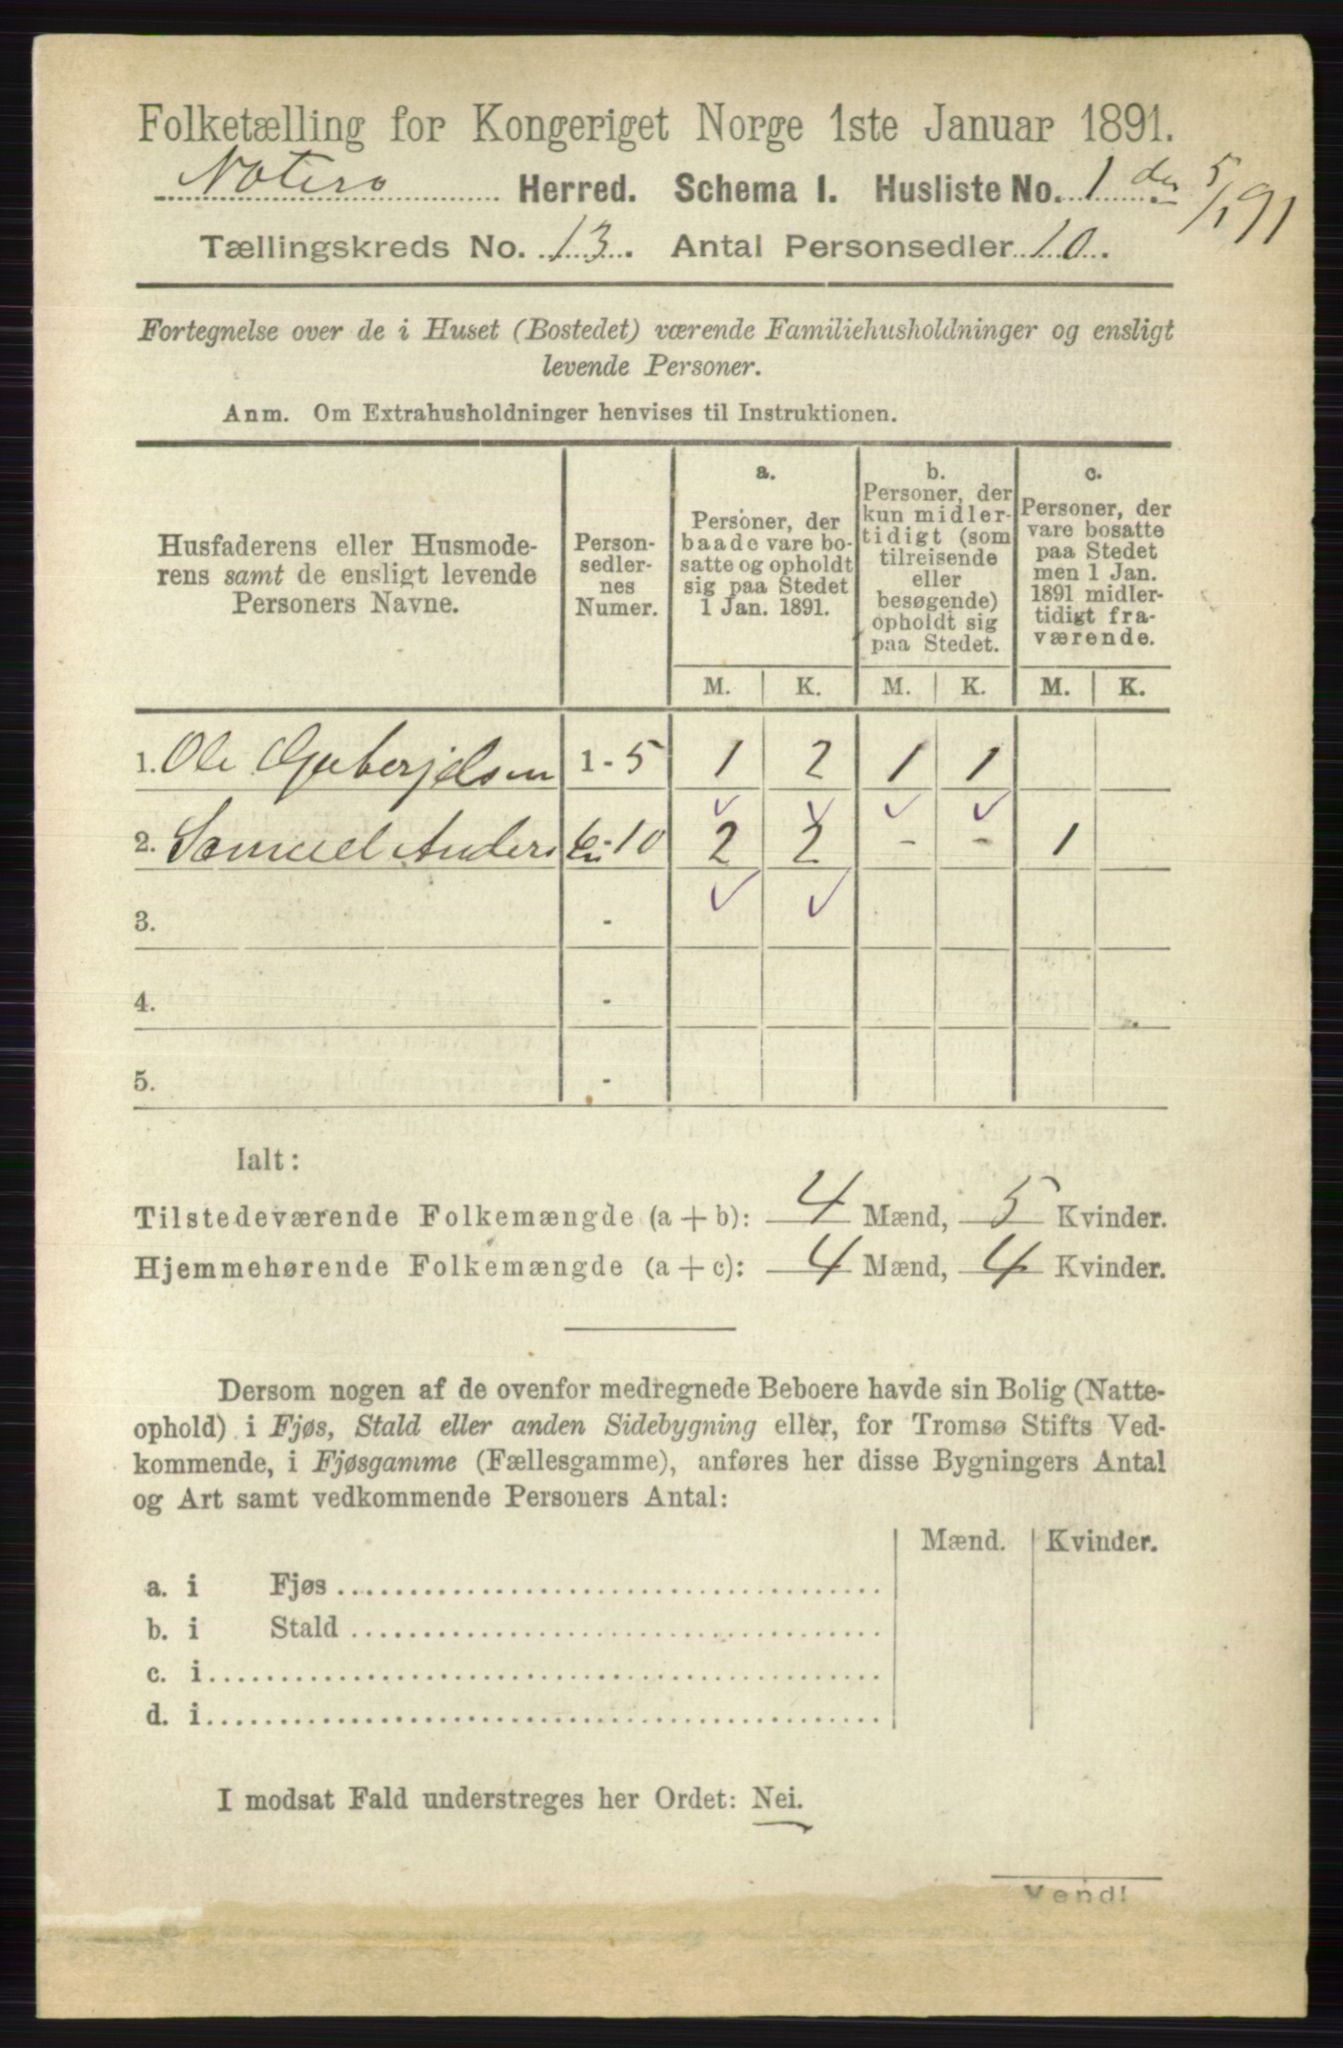 Folketælling for Kongeriget Norge 1ste Januar 1891.
Nøterø Herred. Schema 1. Husliste No. 1 den 5/1 91
Tællingskreds No. 13. Antal Personsedler 10.
Fortegnelse over de i Huset (Bostedet) værende Familiehusholdninger og ensligt
levende Personer.
Anm. Om Extrahusholdninger henvises til Instruktionen.
Husfaderens eller Husmode-
rens samt de ensligt levende
Personers Navne.
Person-
sedler-
nes
Numer.
a.
Personer, der
baade vare bo-
satte og opholdt
sig paa Stedet
1 Jan. 1891.
b.
Personer, der
kun midler-
tidigt (som
tilreisende
eller
besøgende)
opholdt sig
paa Stedet.
c.
Personer, der
vare bosatte
paa Stedet
men 1 Jan.
1891 midler-
tidigt fra-
værende.
M. K. M. K. M. K.
1. Ole 1-5 1 2 1 1
2. Samuel Anders 6-10 2 2 - - 1
3. -
4. -
5. -
Ialt:
Tilstedeværende Folkemængde (a + b): 4 Mænd, 5 Kvinder.
Hjemmehørende Folkemængde (a + c): 4 Mænd, 4 Kvinder.
Dersom nogen af de ovenfor medregnede Beboere havde sin Bolig (Natte-
ophold) i Fjøs, Stald eller anden Sidebygning eller, for Tromsø Stifts Ved-
kommende, i Fjøsgamme (Fællesgamme), anføres her disse Bygningers Antal
og Art samt vedkommende Personers Antal:
Mænd. Kvinder.
a. i Fjøs
b. i Stald
c. i
d. i
I modsat Fald understreges her Ordet: Nei.
Vend!